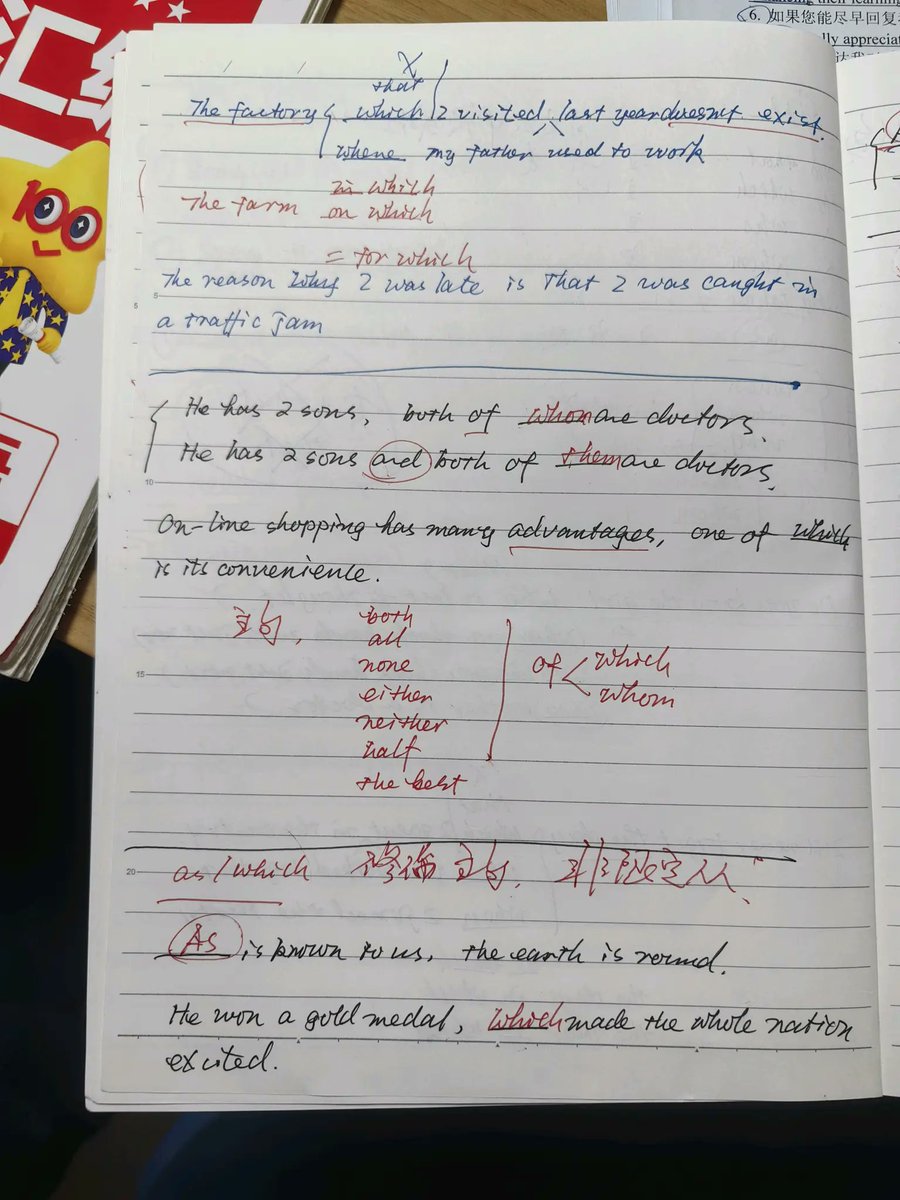 汇编
6. 如果您能尽早回复
lly appreciat
100
X
that
The factory which I visited last year doesn't exist.
where my father used to work
in which
The farm on which
= for which
The reason why I was late is that I was caught in
a traffic jam
5
He has 2 sons, both of whom are doctors.
He has 2 sons and both of them are doctors.
10
On-line shopping has many advantages, one of which
is its convenience.
主句, both
all
none
15
either
neither
half
the best
of which
whom
20
as/which 修饰主句, 非限定从
As is known to us, the earth is round.
He won a gold medal, which made the whole nation
excited.